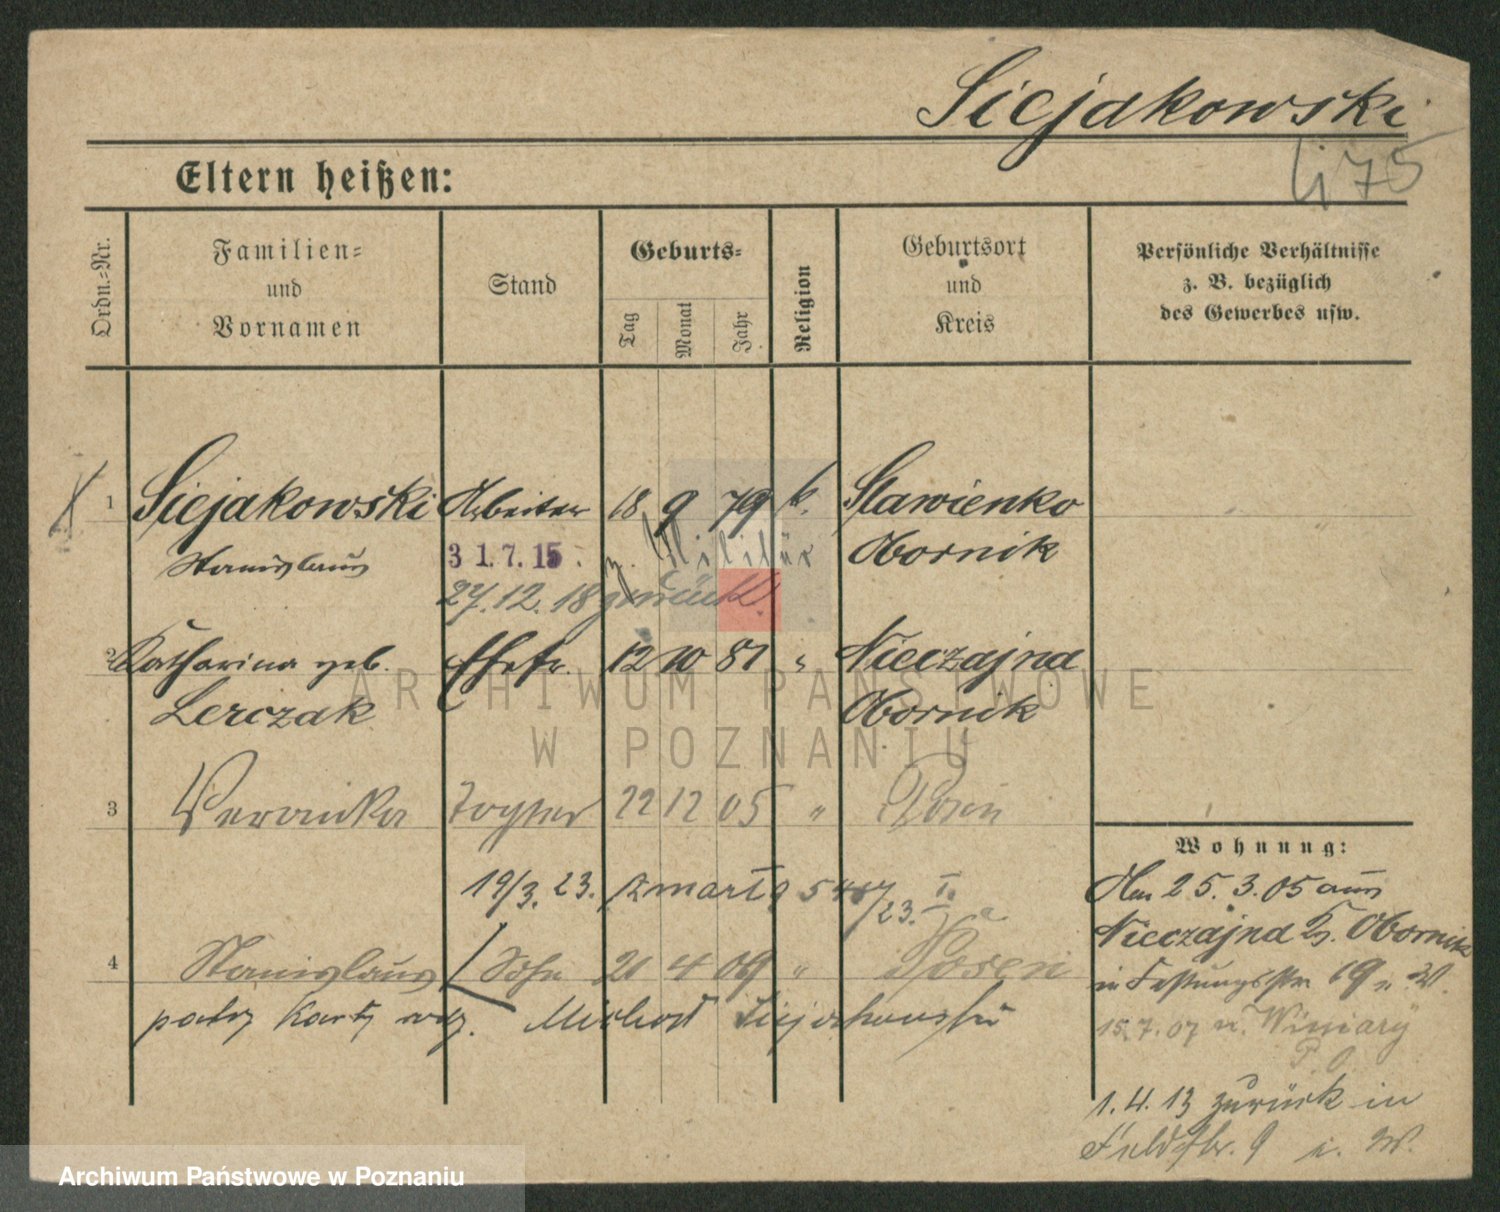 Siejakowski
75
Eltern heißen:
Ordn.-Nr.
Familien-
und
Vornamen
Stand
Geburts-
Tag
Monat
Jahr
Religion
Geburtsort
und
Kreis
Persönliche Verhältnisse
z. B. bezüglich
des Gewerbes usw.
1 Siejakowski Arbeiter 18 9 79 k. Sławienko
Stanislaus 31.7.15. z. Militär Obornik
27.12.18 zurück
2 Katharina geb. Ehefr. 12 10 81 " Nieczajna
Lerczak Obornik
ARCHIWUM PAŃSTWOWE
W POZNANIU
3 Veronika Tochter 22 12 05 " Posen
19/3. 23. zmarł 9
4 Stanislaus Sohn 21 4 09 " Posen
patrz Kartę Michał Siejakowski
Wohnung:
Am 25.3.05 aus
Nieczajna K. Obornik
in Festungsstr. 19 W.
15.7.07 n. Winiary
1.4.13 zurück in
Feldstr. 9 W.
Archiwum Państwowe w Poznaniu